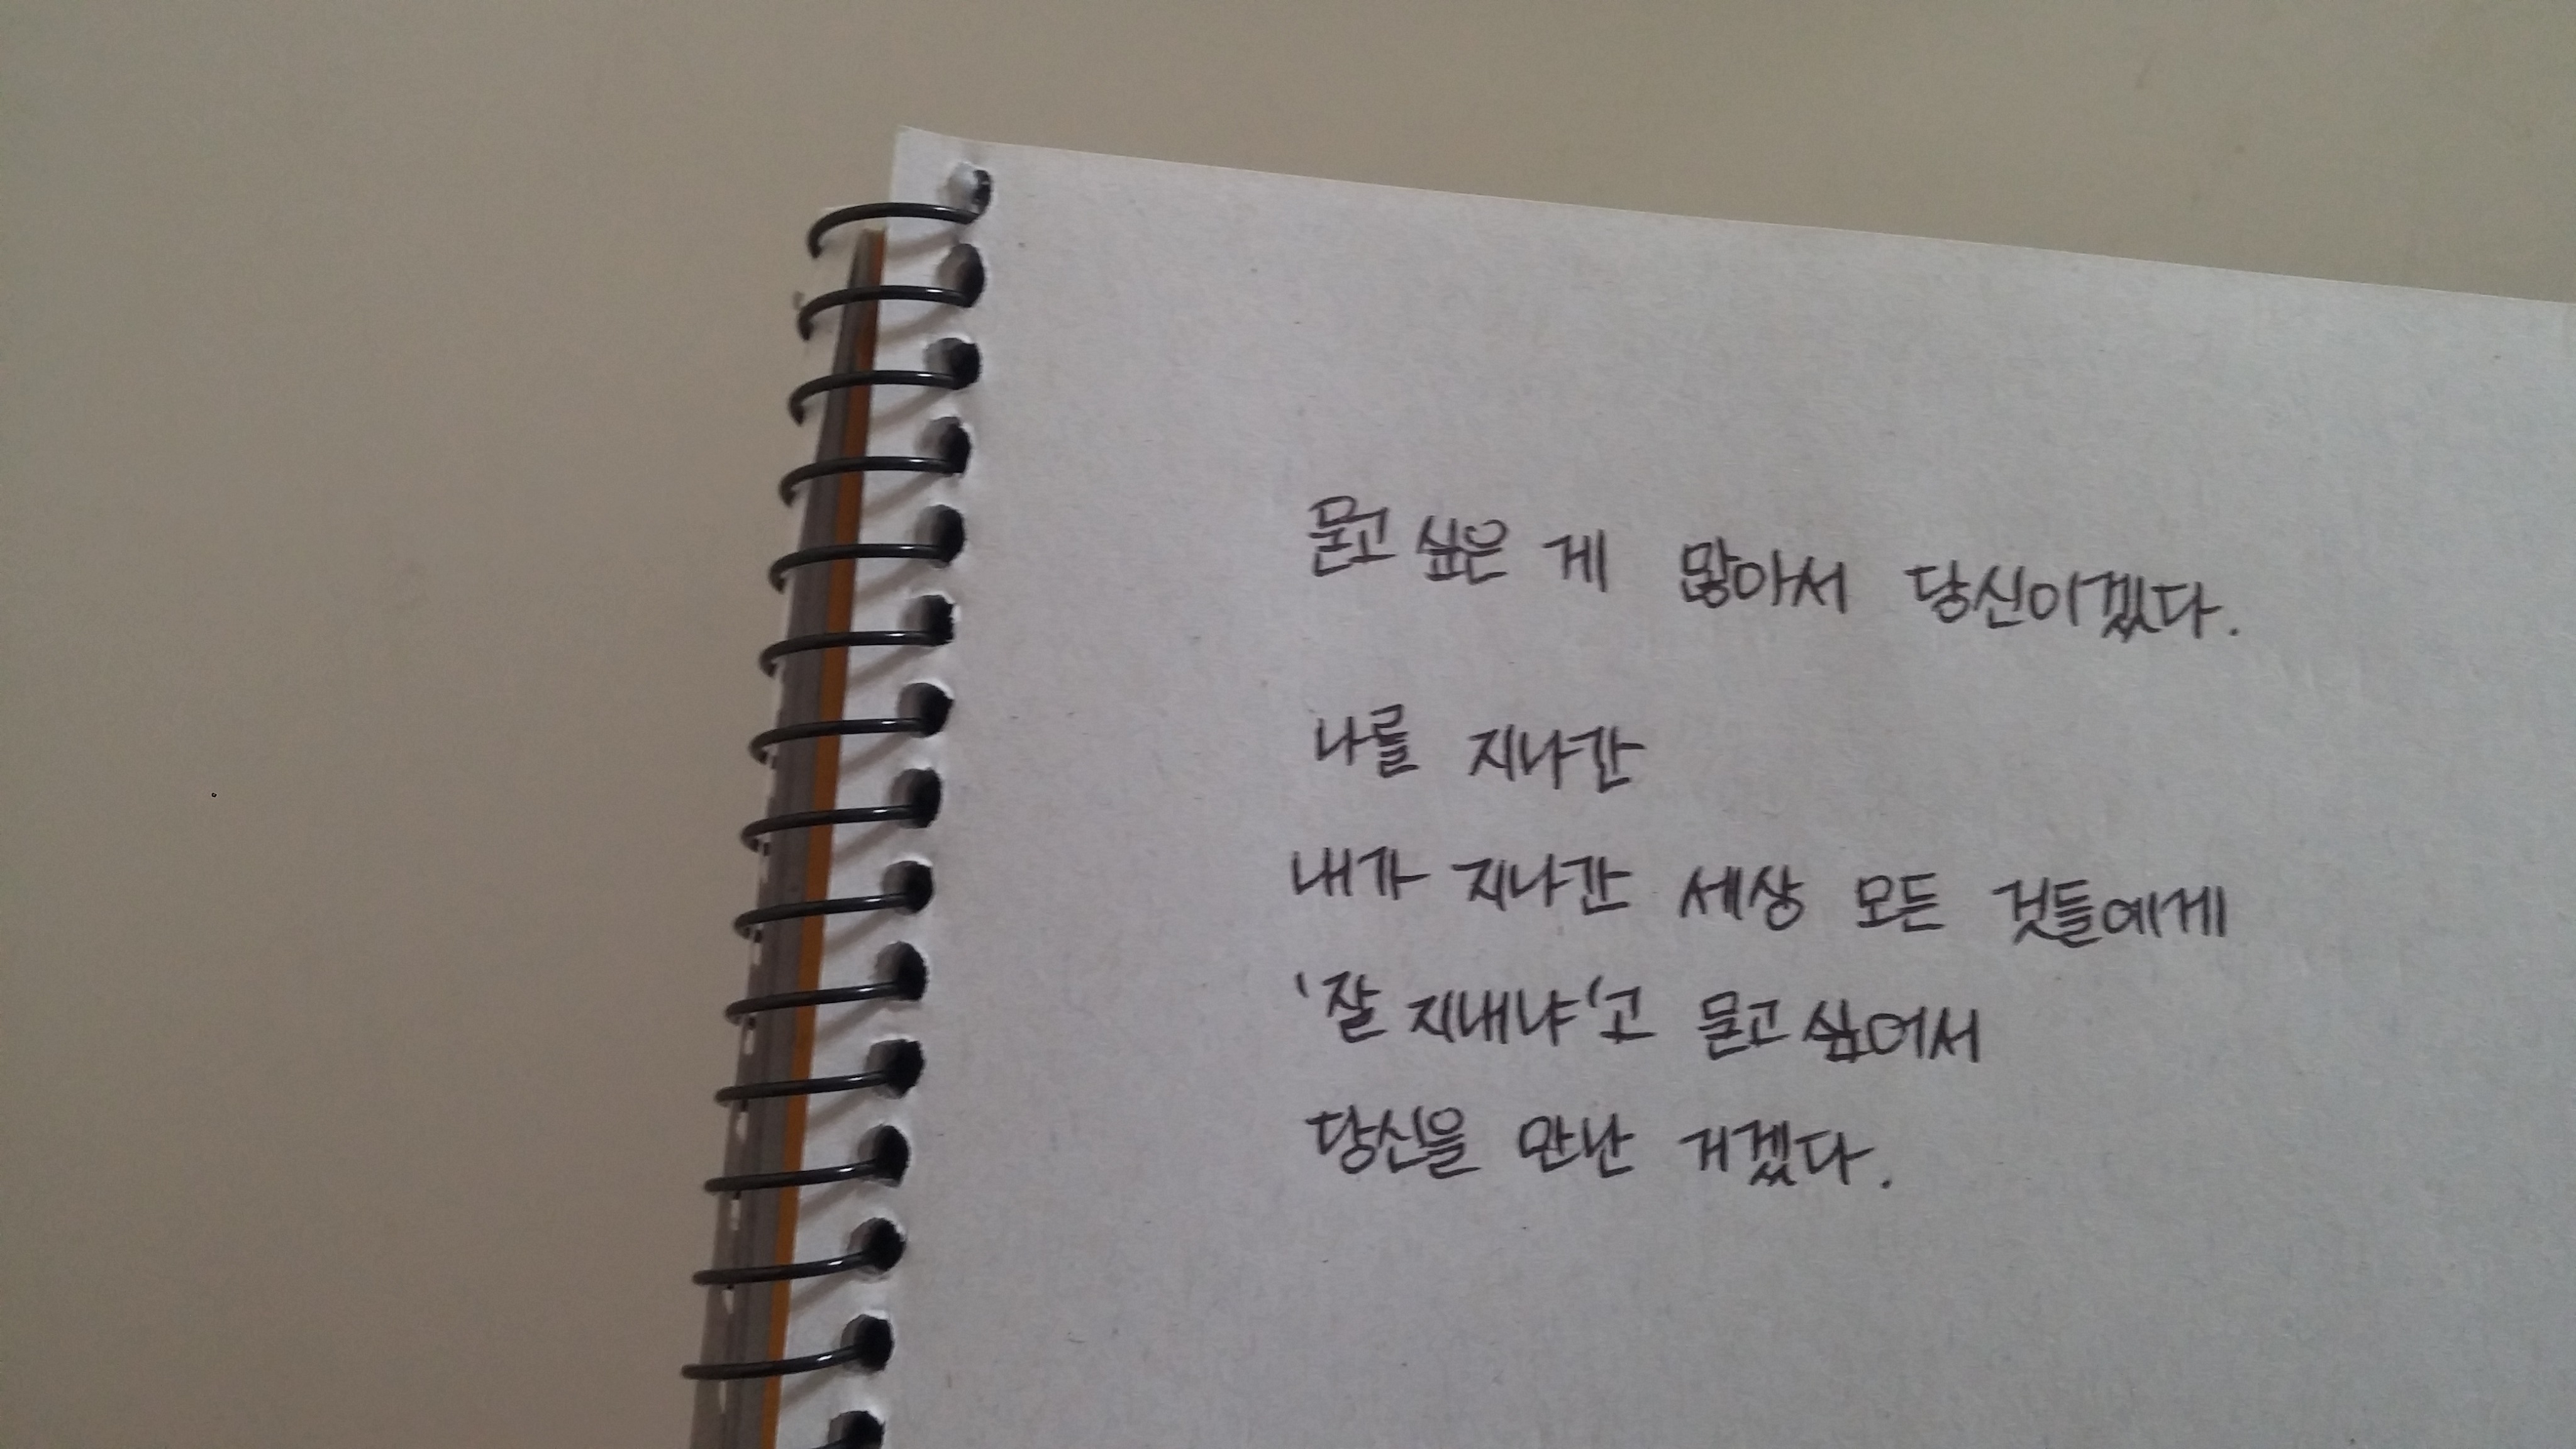 묻고 싶은 게 많아서 당신이겠다.
나를 지나간
내가 지나간 세상 모든 것들에게
'잘 지내냐'고 묻고 싶어서
당신을 만난 거겠다.